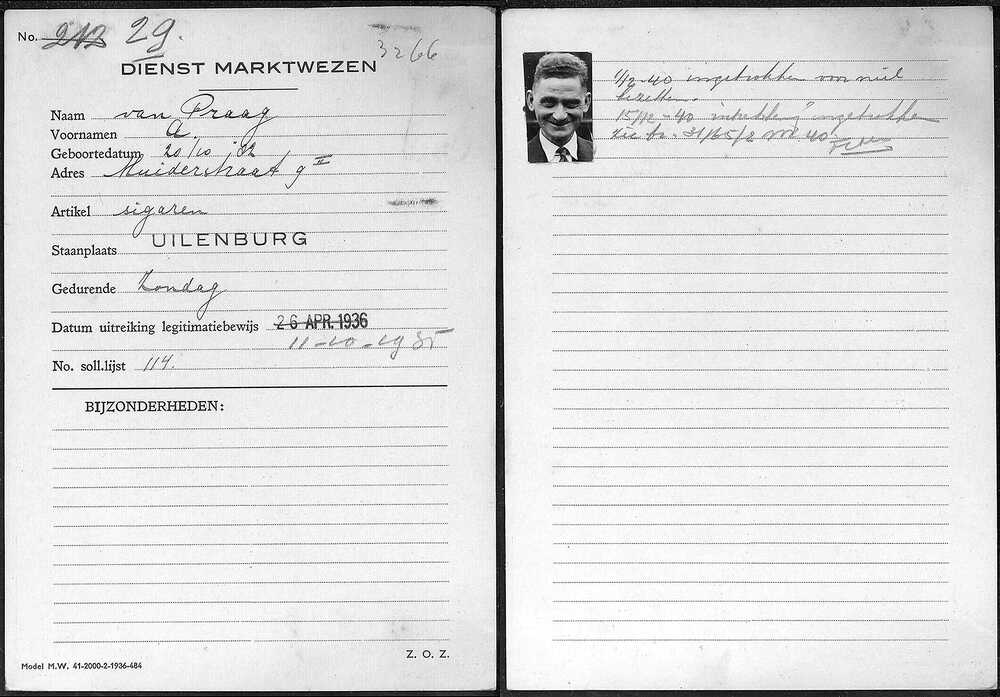 No. 212 29.
3266
DIENST MARKTWEZEN
Naam van Praag
Voornamen A.
Geboortedatum 20/10 '02
Adres Muiderstraat 9 II
Artikel sigaren
Staanplaats UILENBURG
Gedurende Zondag
Datum uitreiking legitimatiebewijs 26 APR. 1936
11-10-1935
No. soll.lijst 114.
BIJZONDERHEDEN:
Z. O. Z.
Model M.W. 41-2000-2-1936-484
1/12-40 ingetrokken voor niet
bezetten.
15/12-40 "intrekking" ingetrokken
Zie br. 31/65/2 M. 40